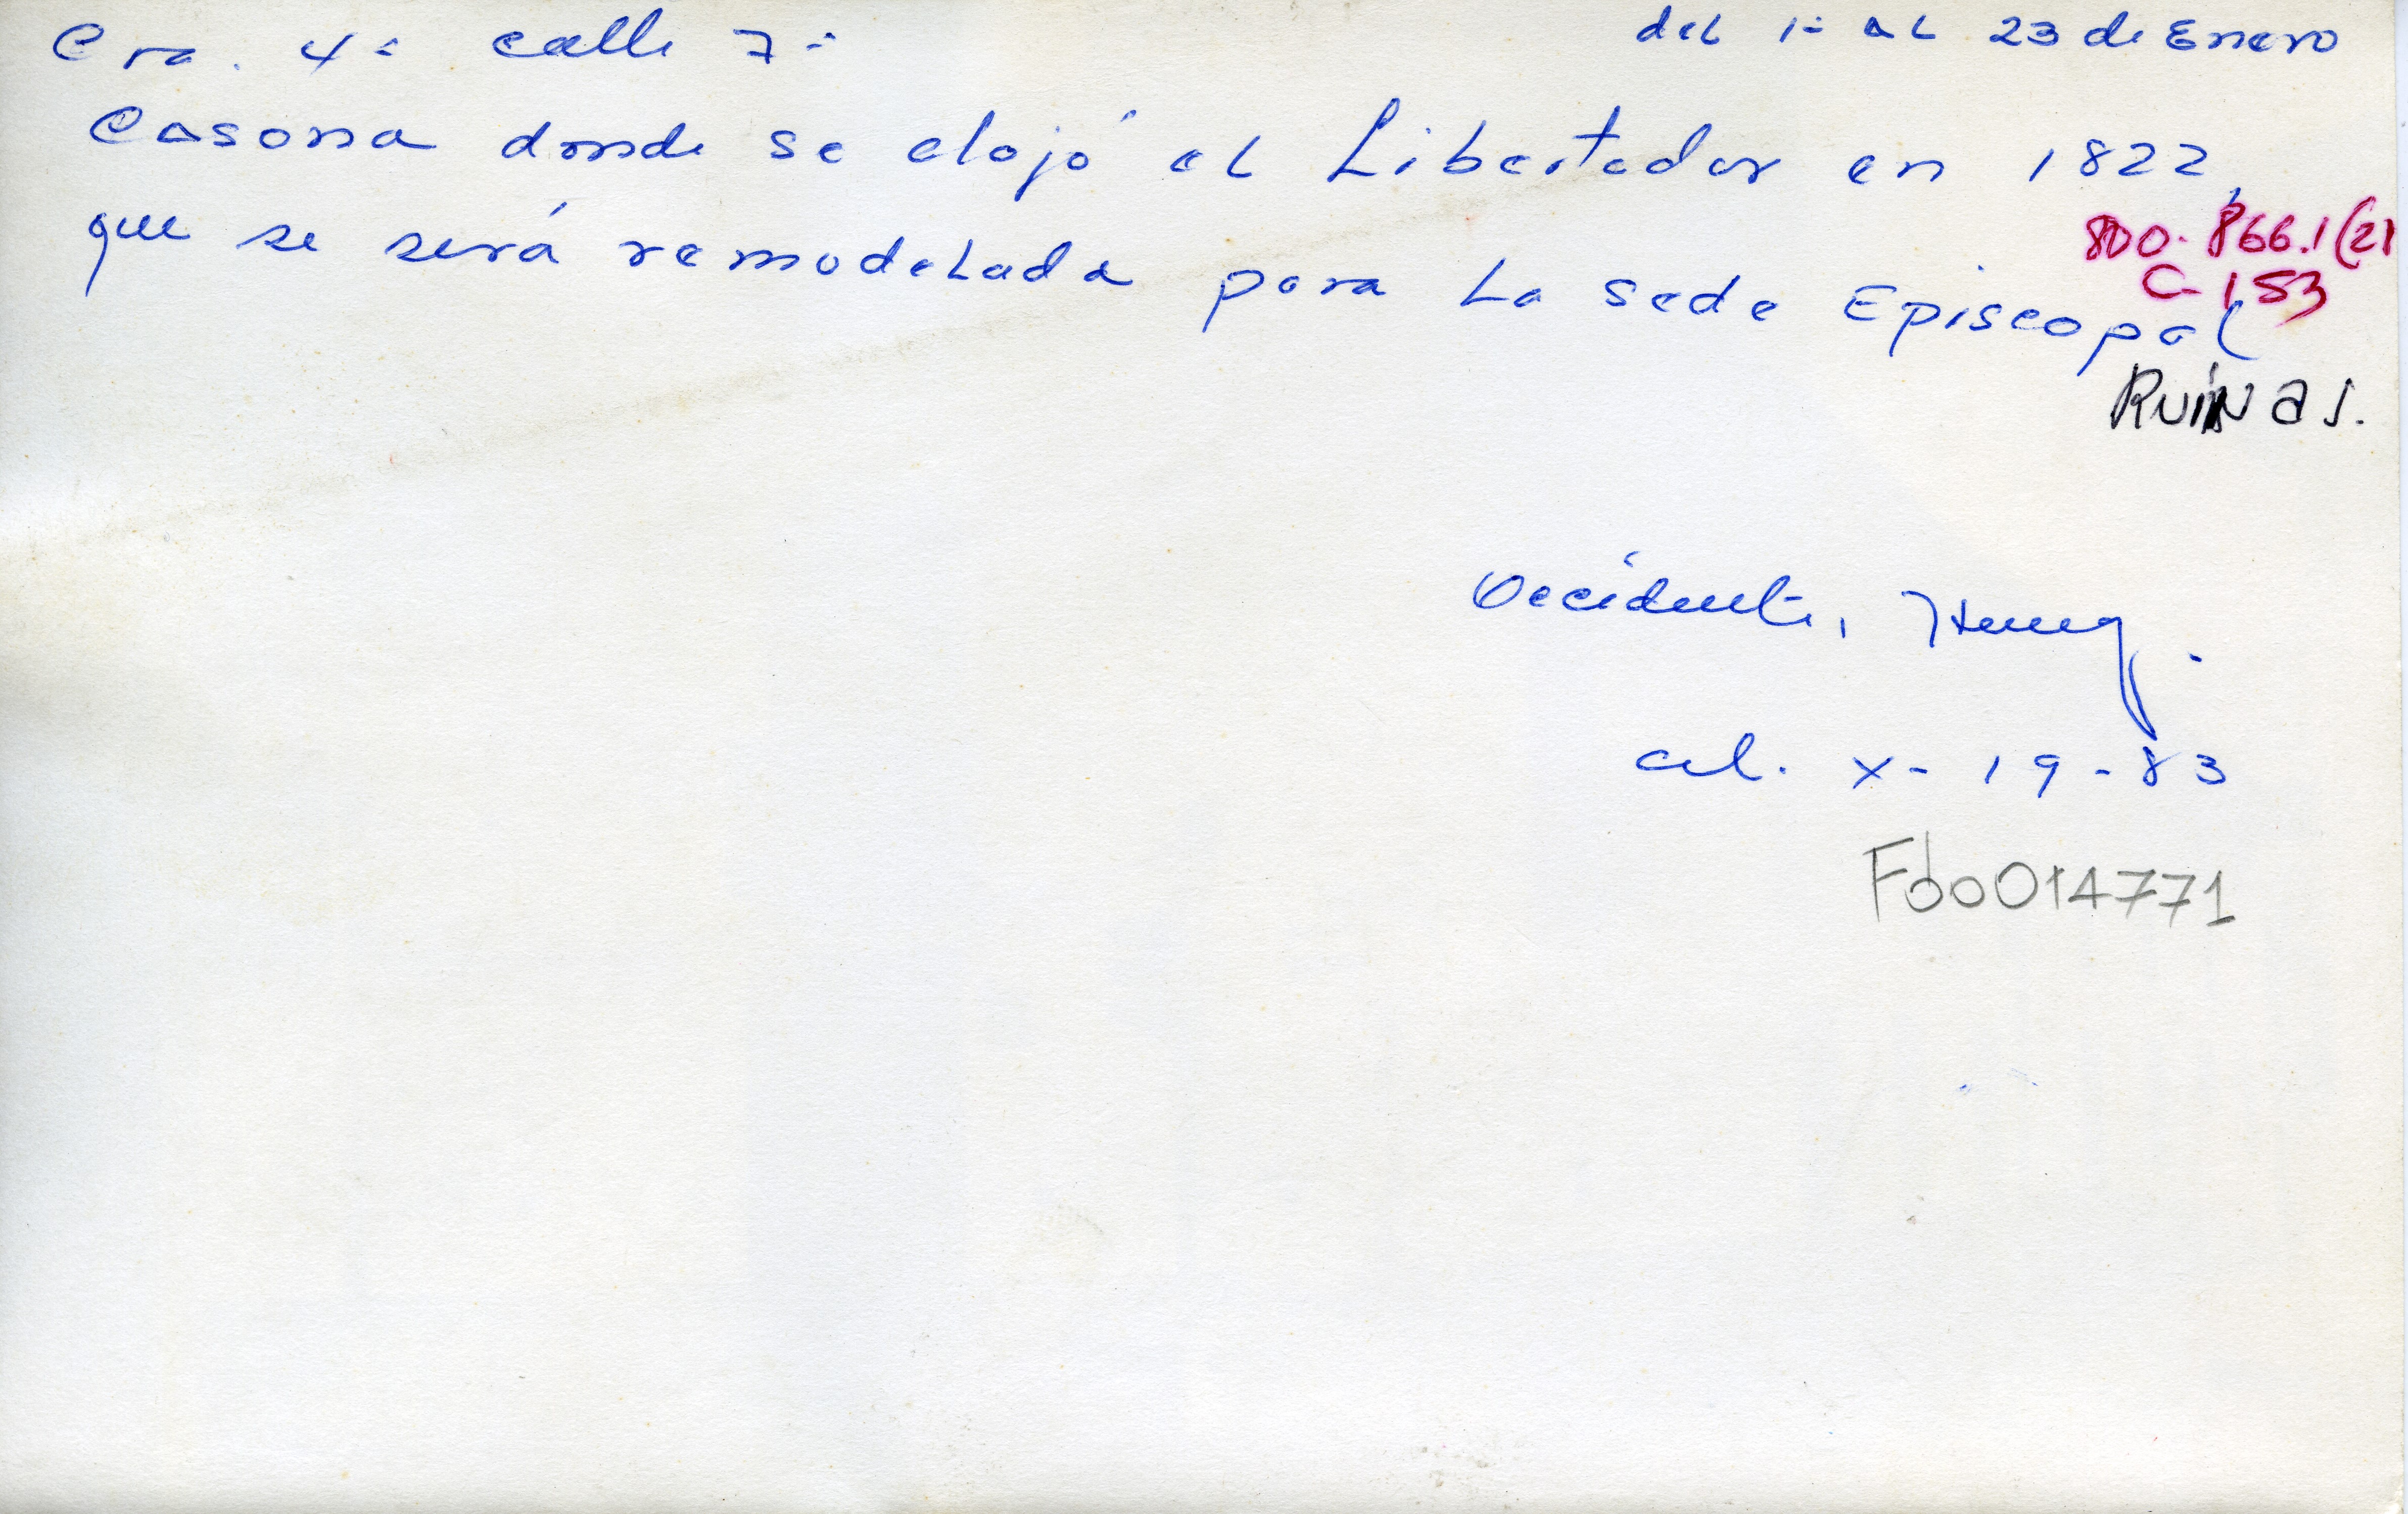 Cra. 4ª calle 7ª del 1º al 23 de Enero
Casona donde se alojó el Libertador en 1822,
que se será remodelada para la sede Episcopal
800-866.1(21
C-153
RUINAS.
Occidente, Henry.
cal. X-19-83
F60014771